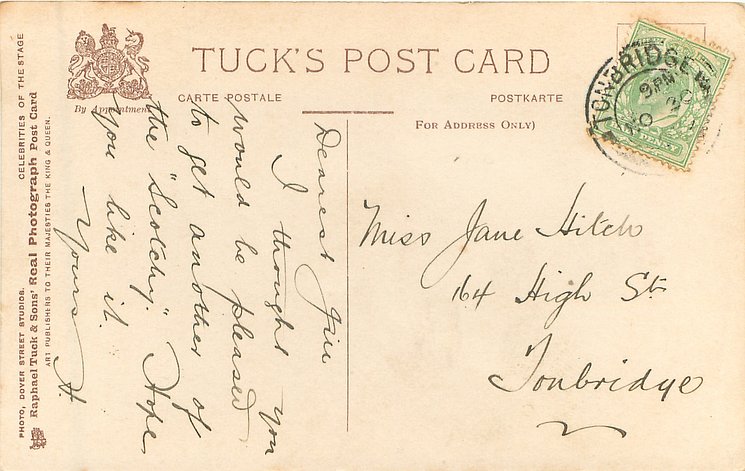 TUCK'S POST CARD
By Appointment
CARTE POSTALE
POSTKARTE
FOR ADDRESS ONLY)
CELEBRITIES OF THE STAGE
PHOTO, DOVER STREET STUDIOS.
Raphael Tuck & Sons' Real Photograph Post Card
ART PUBLISHERS TO THEIR MAJESTIES THE KING & QUEEN.
Dearest Jin
I thought you
would be pleased
to get another of
the "Scotchy." Hope
you like it.
Yours A.
TONBRIDGE
9 PM
NO 30
Miss Jane Hitch
164 High St
Tonbridge